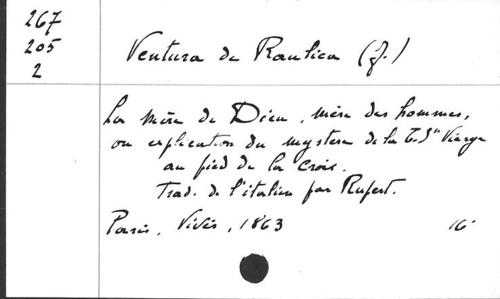 267
205
2
Ventura de Raulica (J.)
La mère de Dieu, mère des hommes,
ou explication du mystère de la T. Ste Vierge
au pied de la croix.
Trad. de l'italien par Rupert.
Paris, Vivès, 1863 16°